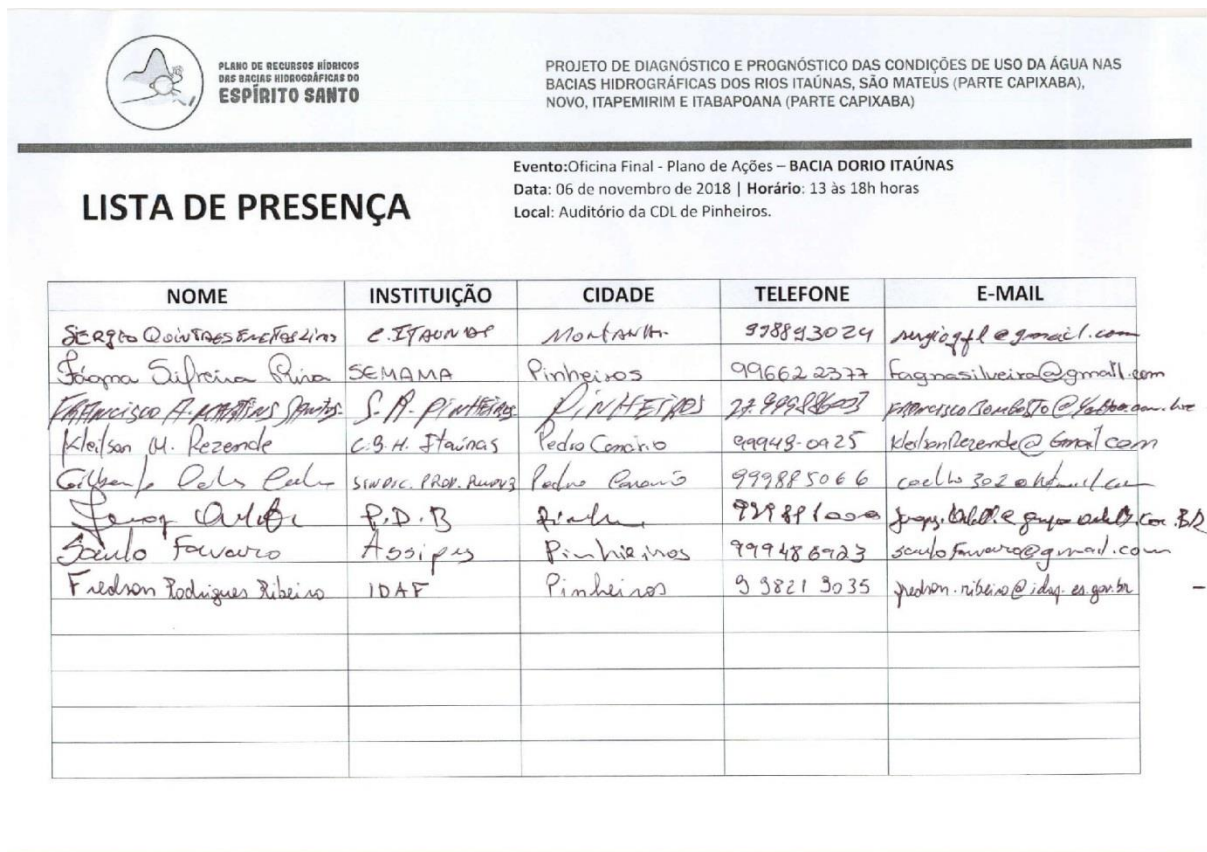 PLANO DE RECURSOS HÍDRICOS
DAS BACIAS HIDROGRÁFICAS DO
ESPÍRITO SANTO
PROJETO DE DIAGNÓSTICO E PROGNÓSTICO DAS CONDIÇÕES DE USO DA ÁGUA NAS
BACIAS HIDROGRÁFICAS DOS RIOS ITAÚNAS, SÃO MATEUS (PARTE CAPIXABA),
NOVO, ITAPEMIRIM E ITABAPOANA (PARTE CAPIXABA)
LISTA DE PRESENÇA
Evento:Oficina Final - Plano de Ações – BACIA DORIO ITAÚNAS
Data: 06 de novembro de 2018 | Horário: 13 às 18h horas
Local: Auditório da CDL de Pinheiros.
NOME INSTITUIÇÃO CIDADE TELEFONE E-MAIL
SERGIO C. ITAUNAS MONTANHA 998893024
Fagna SEMAMA Pinheiros 99662 2377 fagnasilveira@gmail.com
FRANCISCO A. MARTINS Santos S. A. PINHEIROS PINHEIROS
Kleilson M. Rezende C.B.H. Itaúnas Pedro Canário 99949-0925 KleilsonRezende@Gmail com
Gilberto SINDIC. PROD. Pedro Canário 999885066
P.D.B
Saulo Favaro Assipes Pinhieiros 999486923 saulofavaro@gmail.com
Fredson Rodrigues Ribeiro IDAF Pinheiros 9 9821 3035 fredson.ribeiro@idaf.es.gov.br